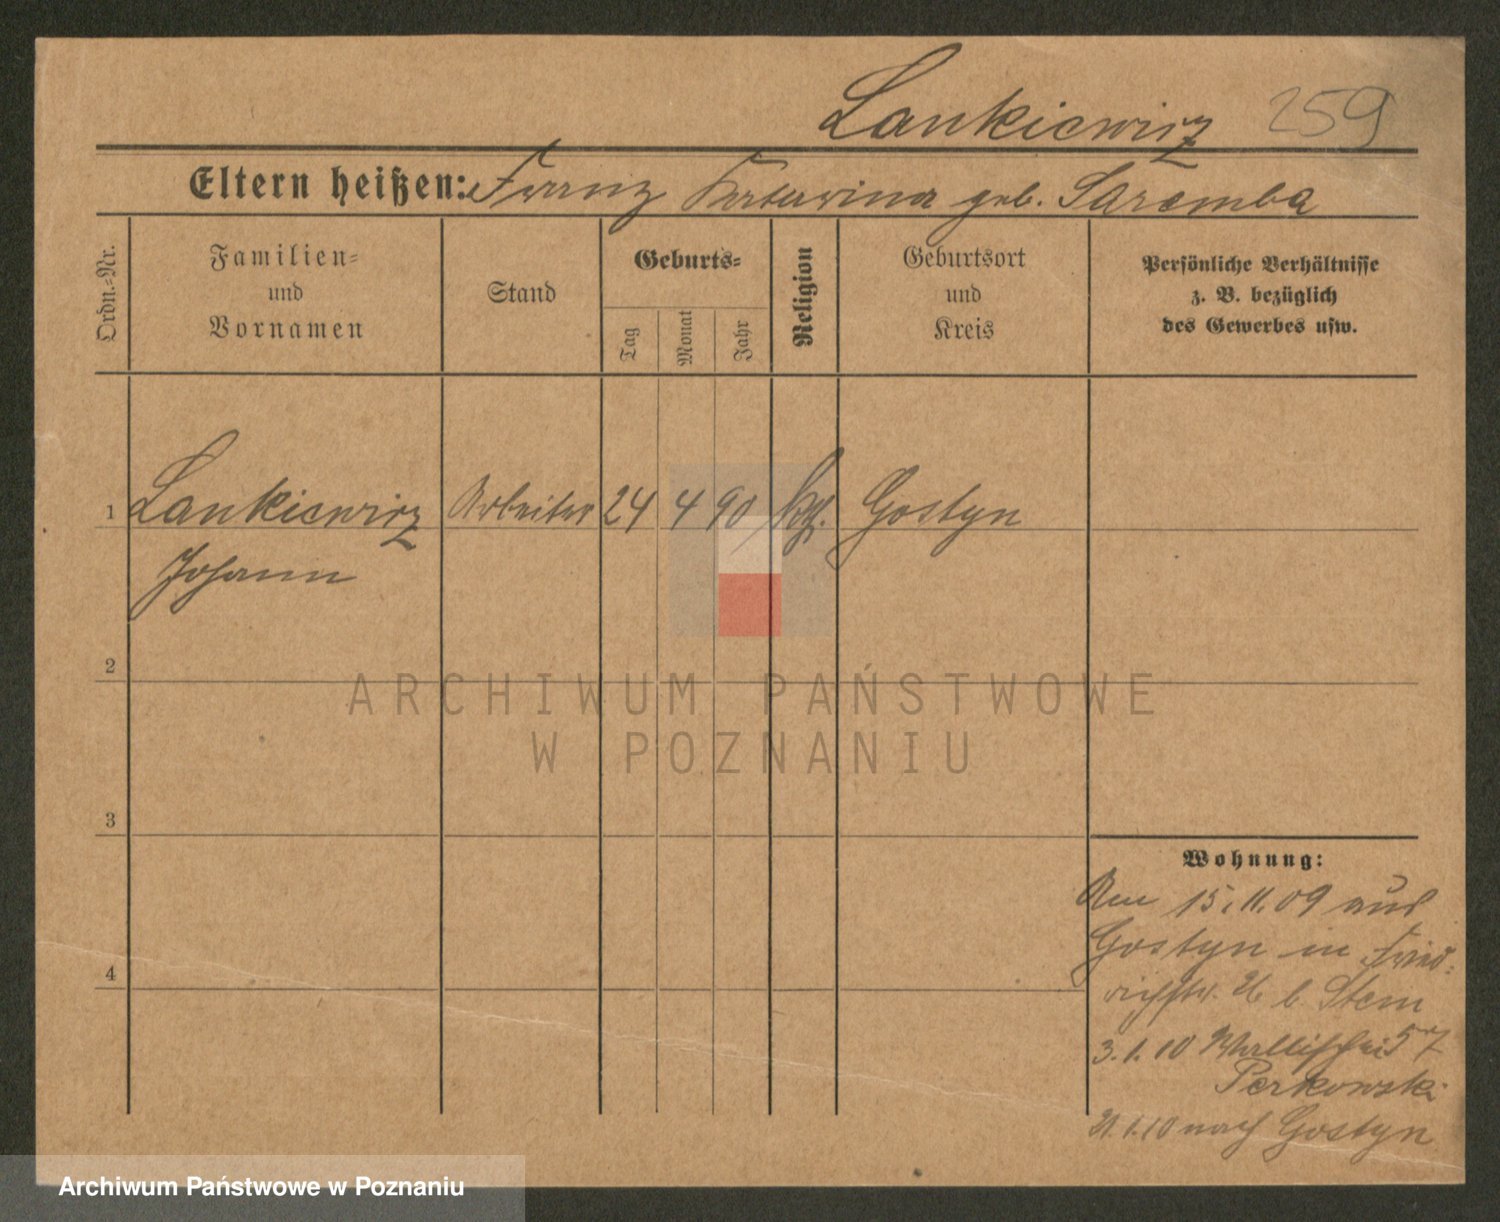 Lankiewicz 259
Eltern heißen: Franz Katarina geb. Saremba
Ordn.-Nr.
Familien-
und
Vornamen
Stand
Geburts-
Tag
Monat
Jahr
Religion
Geburtsort
und
Kreis
Persönliche Verhältnisse
z. B. bezüglich
des Gewerbes usw.
1 Lankiewicz Arbeiter 24 4 90 kath. Gostyn
Johann
2
3
4
Wohnung:
Am 15.11.09 aus
Gostyn in Fried-
richstr. 26 b. Stem
3.1.10 Wallischei 57
Perkowski
21.1.10 nach Gostyn
ARCHIWUM PAŃSTWOWE
W POZNANIU
Archiwum Państwowe w Poznaniu